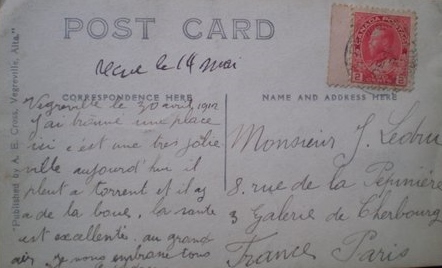 POST CARD
reçue le 14 mai
CORRESPONDENCE HERE
NAME AND ADDRESS HERE
"Published by A. E. Cross, Vegreville, Alta."
CANADA POSTAGE
2 2
Vegreville le 30 avril 1912
J'ai trouvé une place
ici c'est une très jolie
ville aujourd'hui il
pleut a torrent et il y
a de la boue, la santé
est excellente au grand
air, je vous embrasse tous
Monsieur J. Ledru
8. rue de la Pépinière
3 Galerie de Cherbourg
France Paris